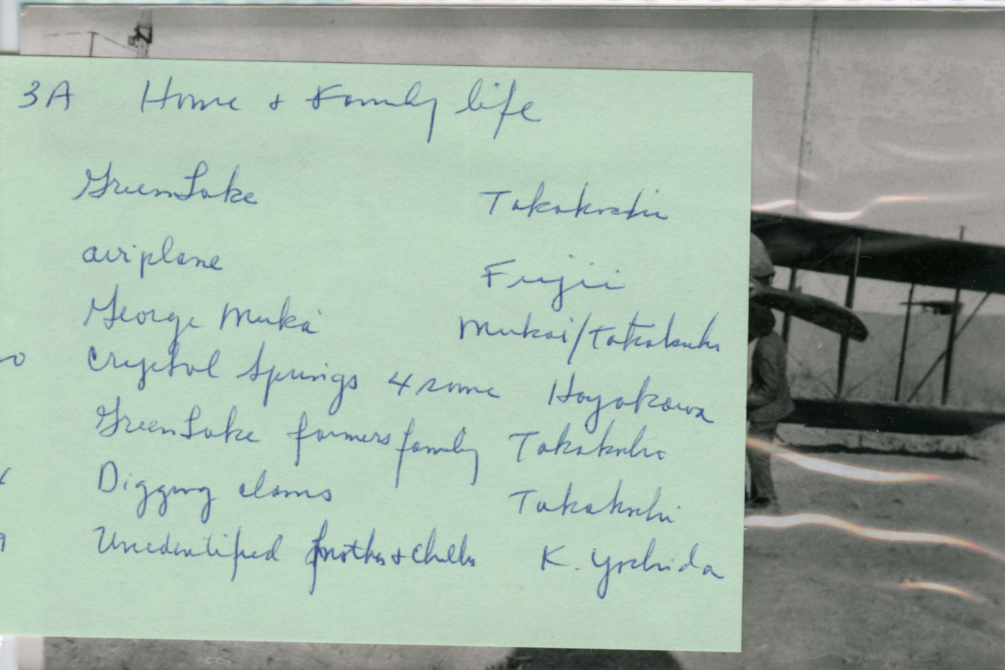 3A Home & Family life
Green Lake Takakoshi
airplane Fujii
George Mukai Mukai/Takakoshi
Crystal Springs 4some Hayakawa
Green Lake farmers family Takakoshi
Digging clams Takakoshi
Unidentified mother & K. Yoshida